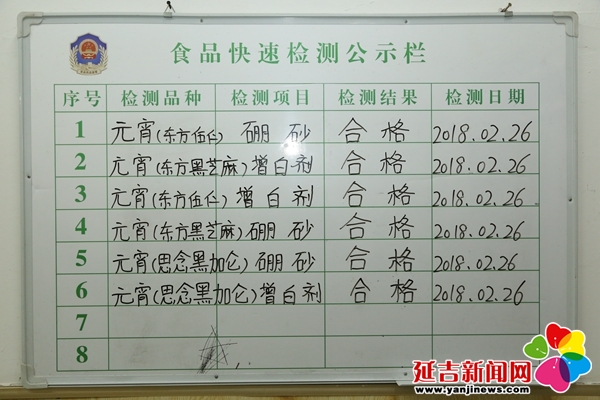 食品快速检测公示栏
序号 检测品种 检测项目 检测结果 检测日期
1 元宵(东方伍仁) 硼砂 合格 2018.02.26
2 元宵(东方黑芝麻) 增白剂 合格 2018.02.26
3 元宵(东方伍仁) 增白剂 合格 2018.02.26
4 元宵(东方黑芝麻) 硼砂 合格 2018.02.26
5 元宵(思念黑加仑) 硼砂 合格 2018.02.26
6 元宵(思念黑加仑) 增白剂 合格 2018.02.26
7
8
延吉新闻网
www.yanjinews.com